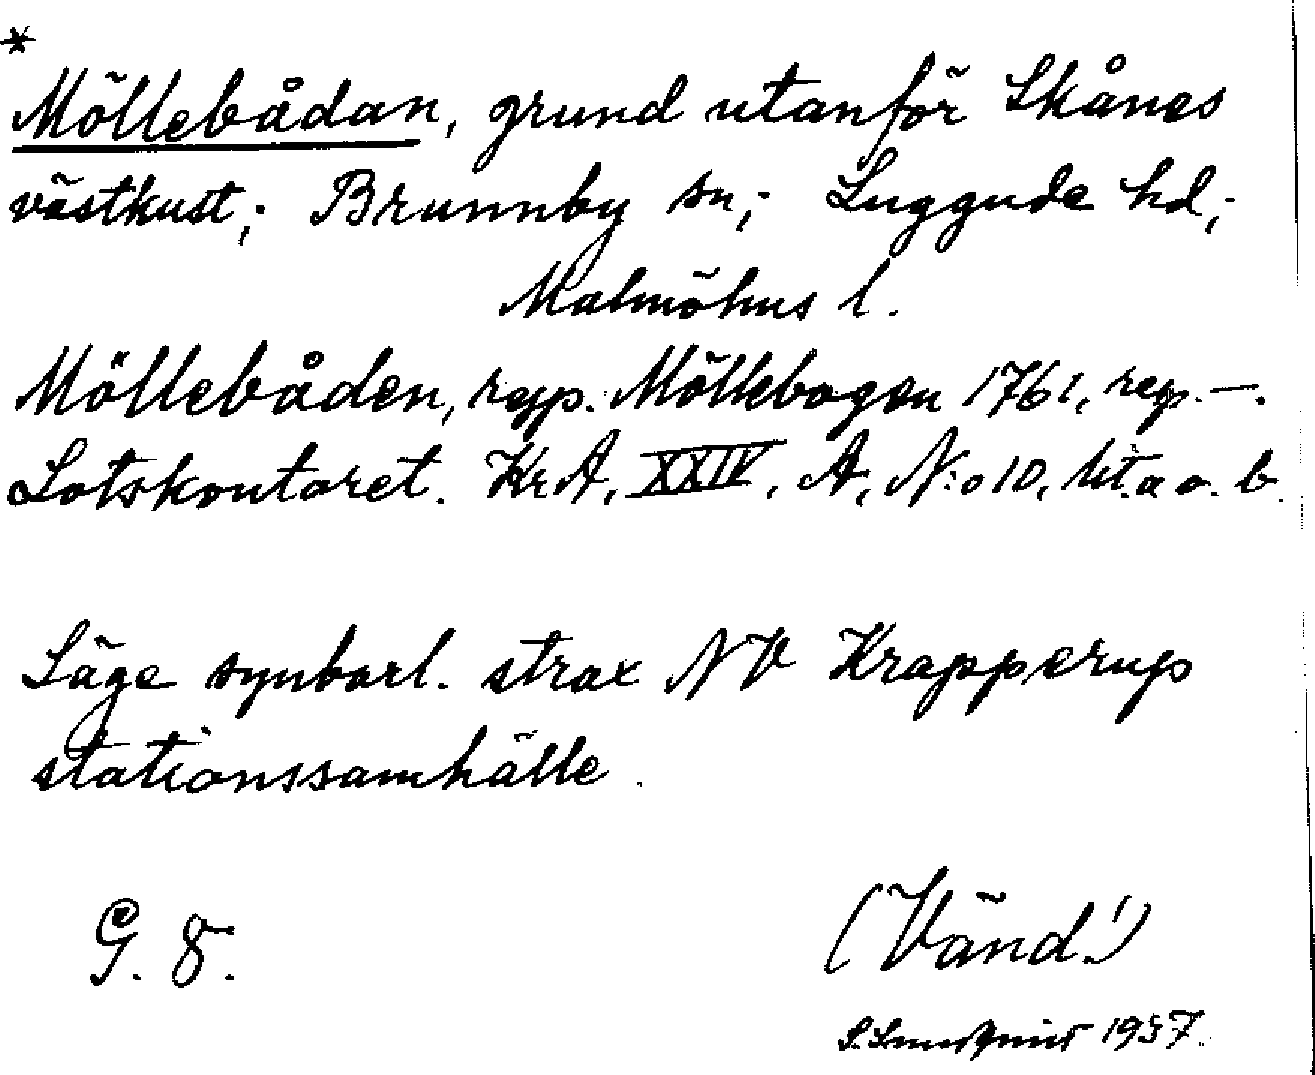 *
Möllebådan, grund utanför Skånes
västkust; Brunnby sn; Luggude hd;
Malmöhus l.
Möllebåden, resp. Möllebogen 1761, rep. —.
Lotskontoret. KrA, XXIV, A, N:o 10, litt. a o. b.
Läge synbarl. strax NV Krapperup
stationssamhälle.
G. 8.
(Vänd!)
1937.